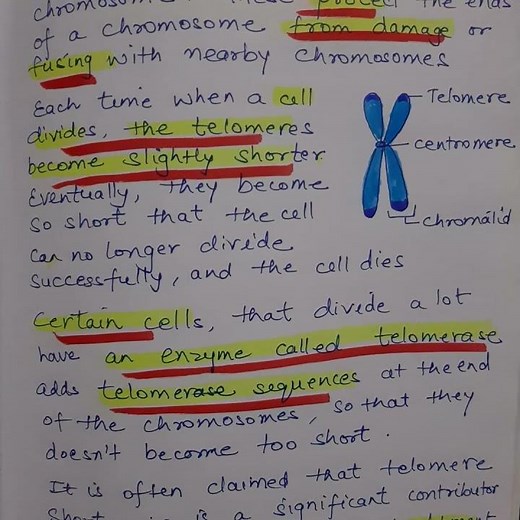 the ends
of a chromosome from damage or
fusing with nearby chromosomes
Each time when a cell
divides, the telomeres
become slightly shorter
Eventually, they become
so short that the cell
can no longer divide
successfully, and the cell dies
Telomere
centromere
chromatid
Certain cells, that divide a lot
have an enzyme called telomerase
adds telomerase sequences at the end
of the chromosomes, so that they
doesn't become too short.
It is often claimed that telomere
is a significant contributor